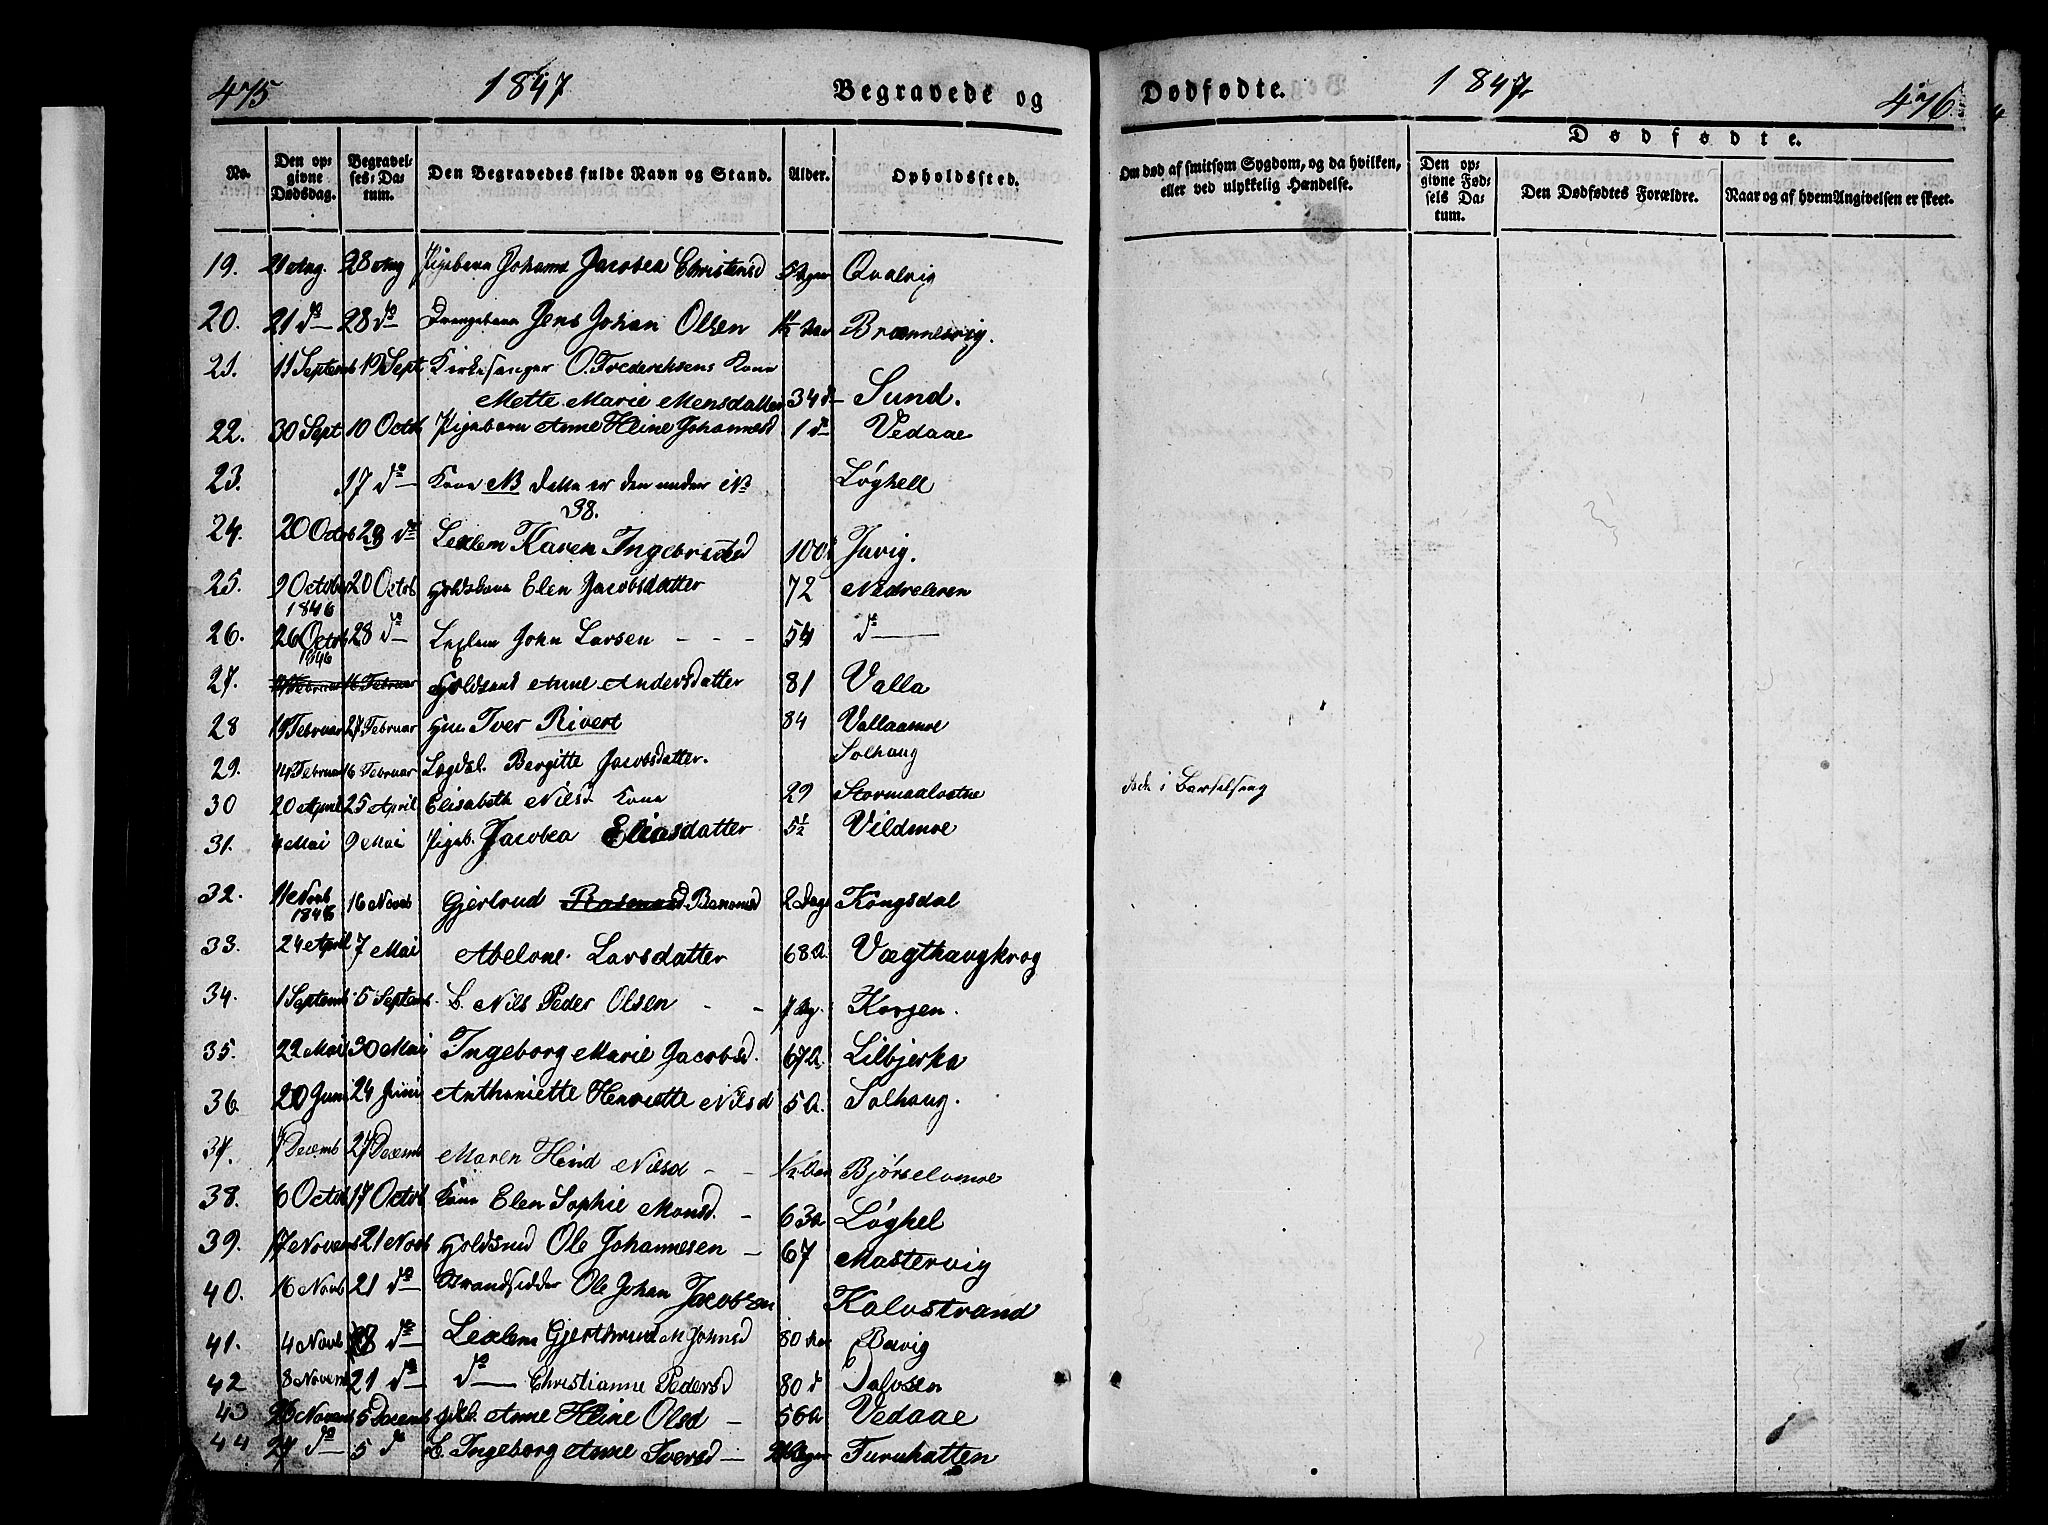 475 1847 Begravede og
No. Den opgivne Dødsdag. Begravelses-Datum. Den Begravedes fulde Navn og Stand. Alder. Opholdssted.
19. 21 Aug. 28 Aug Pigebarn Johanna Jacobea Christensd 5 Uger Qvalvig
20. 21 do 28 do Drengebarn Jens Johan Olsen 1½ Aar Brænnesvig.
21. 11 Septemb 19 Sept Kirkesanger O. Frederiksens Kone
Mette Marie Mensdatter 34 do Sund.
22. 30 Sept 10 Octb Pigebarn Anne Heine Johannesd 1 do Vedaae
23. 17 do Kone NB dette er den under No Løghell
38.
24. 20 Octrb 23 do Lexlem Karen Ingebrigtsd 100 Javig.
25. 9 October 20 Octrb Holdskone Elen Jacobsdatter 72 Nedreleren
1846
26. 26 Octrb 28 do Lexlem John Larsen - - - 54 do
1846
27. Februar 16 Februar Anne Andersdatter 81 Valla
28 19 Februar 27 Februar Iver Rivert 84 Vallaamoe
29. 14 Februar 16 Februar Lægdsl. Bergitte Jacobsdatter. Solhaug
30 20 April 25 April Elisabeth Nilsd Kone 29 Stormaalvatne
31. 4 Mai 9 Mai Pigeb. Jacobea Eliasdatter 5½ Vildmoe
32. 11 Novb 16 Novb Gjertrud Rasmusd Benonisd 2 Dage Kongsdal
1846
33. 24 April 7 Mai Abelone Larsdatter 68 A. Vægthaugkrog
34. 1 Septemb 5 Septemb. B. Nils Peder Olsen - - 7 Dg. Korgen.
35. 22 Mai 30 Mai Ingeborg Marie Jacobsd. 67 A Lilbjerka
36. 20 Juni 24 Juni Anthoniette Henriette Nilsd 5 A. Solhaug.
37. 7 Decemb 27 Decemb Maren Hend Nilsd - - ½ Aar Bjørselvmoe
38. 6 Octrb 17 Octrb Kone Elen Sophie Monsd. - 63 a Løghel
39. 17 Novem 21 Novb Ole Johannesen - 67 Mastervig
40. 16 Novb 21 do Strandsidder Ole Johan Jacobsen Kalvstrand
41. 4 Novb 28 do Lexlem Gjerthrud M Johnsd 80 Aar Bavig
42 8 Novem 21 do do Christianne Pedersd 80 d Dalosen
43 26 Novem 5 Decemb Anne Heine Olsd - 56 A Vedaae
44 27 do 5 do B. Ingeborg Anne Iversd - Uger Furuhatten
Dødfødte. 1847. 476
Om død af smitsom Sygdom, og da hvilken, eller ved ulykkelig Hændelse. Dødfødte.
Den opgivne Fødsels Datum. Den Dødfødtes Forældre. Naar og af hvem Angivelsen er skeet.
død i Barselseng